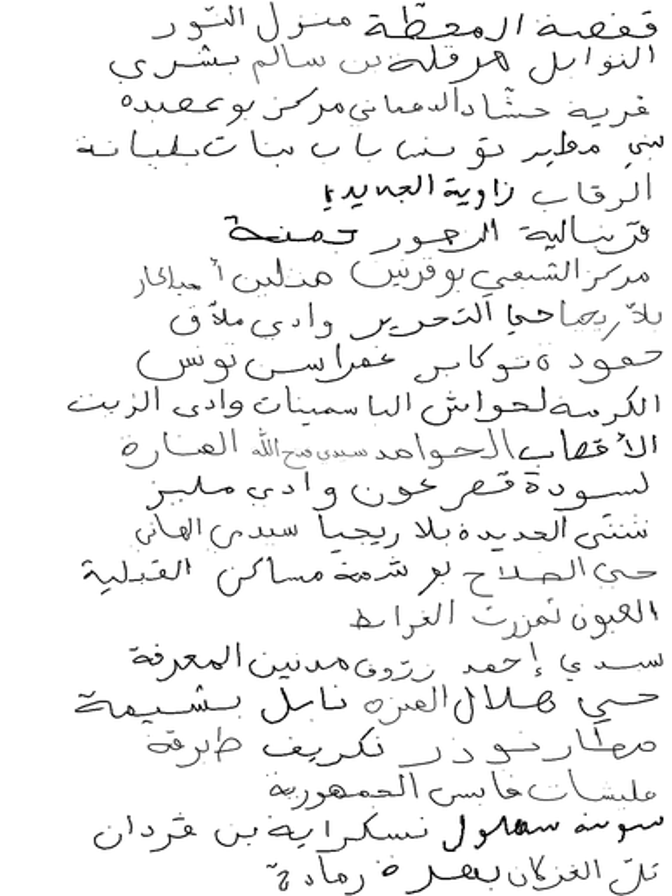 قفصة المحطّة منزل النّور
النوايل هرقلة بن سالم بشري
قرية حشّاد الدهماني مركز بوعصيدة
بني مطير تونس باب بنات بليانة
الرقاب زاوية الجديدي
قرّنبالية الرحمور جمنة
مركز الشيحي بوقرنين هذلين
بلاّريجيا حي التحرير وادي ملاّق
حمودة توكابر غمراسن تونس
الكرمة لحواش الياسمينات وادي الزيت
الأقصاب الحوامد سيدي فتح الله المنارة
لسودة قصر عون وادي مليز
شنني الجديدة بلا ريجيا سيدي الهاني
حي الصلاح بو شرمة مساكن القبلية
العيون تمزرت الغرابط
سيدي إحمد زرّوق مدنين المعرفة
حي هلال العيزة نابل بشيمة
مطار نوذر نكريف طبرقة
مليشات قابس الجمهورية
سوسة سهلول نسكراية بن قردان
تلّ الغزلان بصرة رمادة